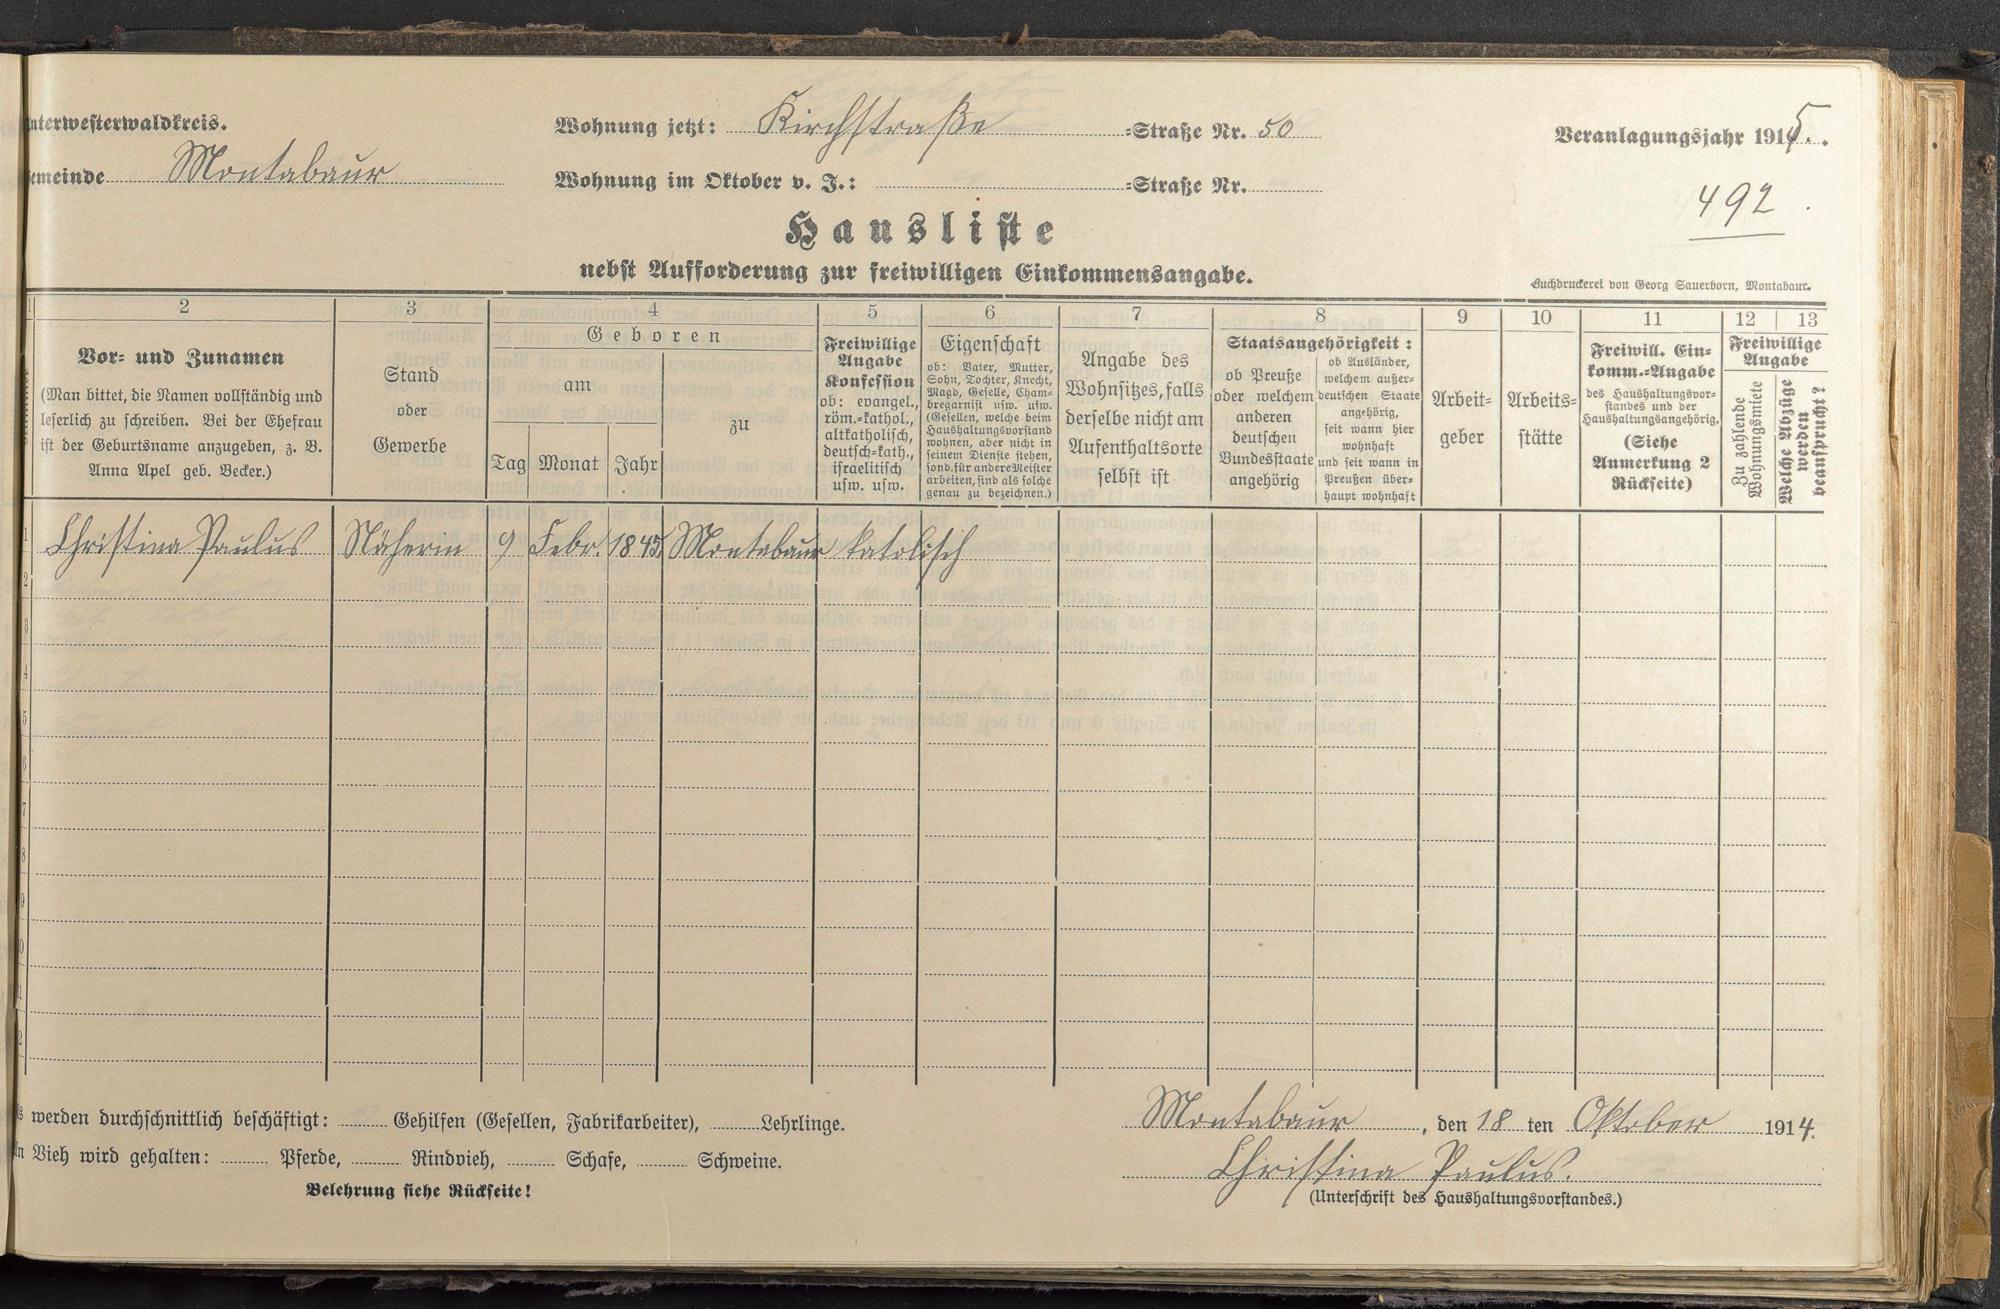 Unterwesterwaldkreis.
Gemeinde Montabaur
Wohnung jetzt: Kirchstraße =Straße Nr. 50
Wohnung im Oktober v. J.: =Straße Nr.
Veranlagungsjahr 1915.
492.
Hausliste
nebst Aufforderung zur freiwilligen Einkommensangabe.
Buchdruckerei von Georg Sauerborn, Montabaur.
1 2 3 4 5 6 7 8 9 10 11 12 13
Vor- und Zunamen
(Man bittet, die Namen vollständig und
leserlich zu schreiben. Bei der Ehefrau
ist der Geburtsname anzugeben, z. B.
Anna Apel geb. Becker.)
Stand
oder
Gewerbe
Geboren
am
zu
Tag Monat Jahr
Freiwillige
Angabe
Konfession
ob: evangel.,
röm.-kathol.,
altkatholisch,
deutsch-kath.,
israelitisch
usw. usw.
Eigenschaft
ob: Vater, Mutter,
Sohn, Tochter, Knecht,
Magd, Geselle, Cham-
bregarnist usw. usw.
(Gesellen, welche beim
Haushaltungsvorstand
wohnen, aber nicht in
seinem Dienste stehen,
sond. für andere Meister
arbeiten, sind als solche
genau zu bezeichnen.)
Angabe des
Wohnsitzes, falls
derselbe nicht am
Aufenthaltsorte
selbst ist
Staatsangehörigkeit:
ob Preuße
oder welchem
anderen
deutschen
Bundesstaate
angehörig
ob Ausländer,
welchem außer-
deutschen Staate
angehörig,
seit wann hier
wohnhaft
und seit wann in
Preußen über-
haupt wohnhaft
Arbeit-
geber
Arbeits-
stätte
Freiwill. Ein-
komm.-Angabe
des Haushaltungsvor-
standes und der
Haushaltungsangehörig.
(Siehe
Anmerkung 2
Rückseite)
Freiwillige
Angabe
Zu zahlende
Wohnungsmiete
Welche Abzüge
werden
beansprucht?
1 Christina Paulus Näherin 9 Febr. 1845. Montabaur katolisch
2
3
4
5
6
7
8
9
0
1
2
werden durchschnittlich beschäftigt: Gehilfen (Gesellen, Fabrikarbeiter), Lehrlinge.
An Vieh wird gehalten: Pferde, Rindvieh, Schafe, Schweine.
Belehrung siehe Rückseite!
Montabaur, den 18 ten Oktober 1914.
Christina Paulus.
(Unterschrift des Haushaltungsvorstandes.)